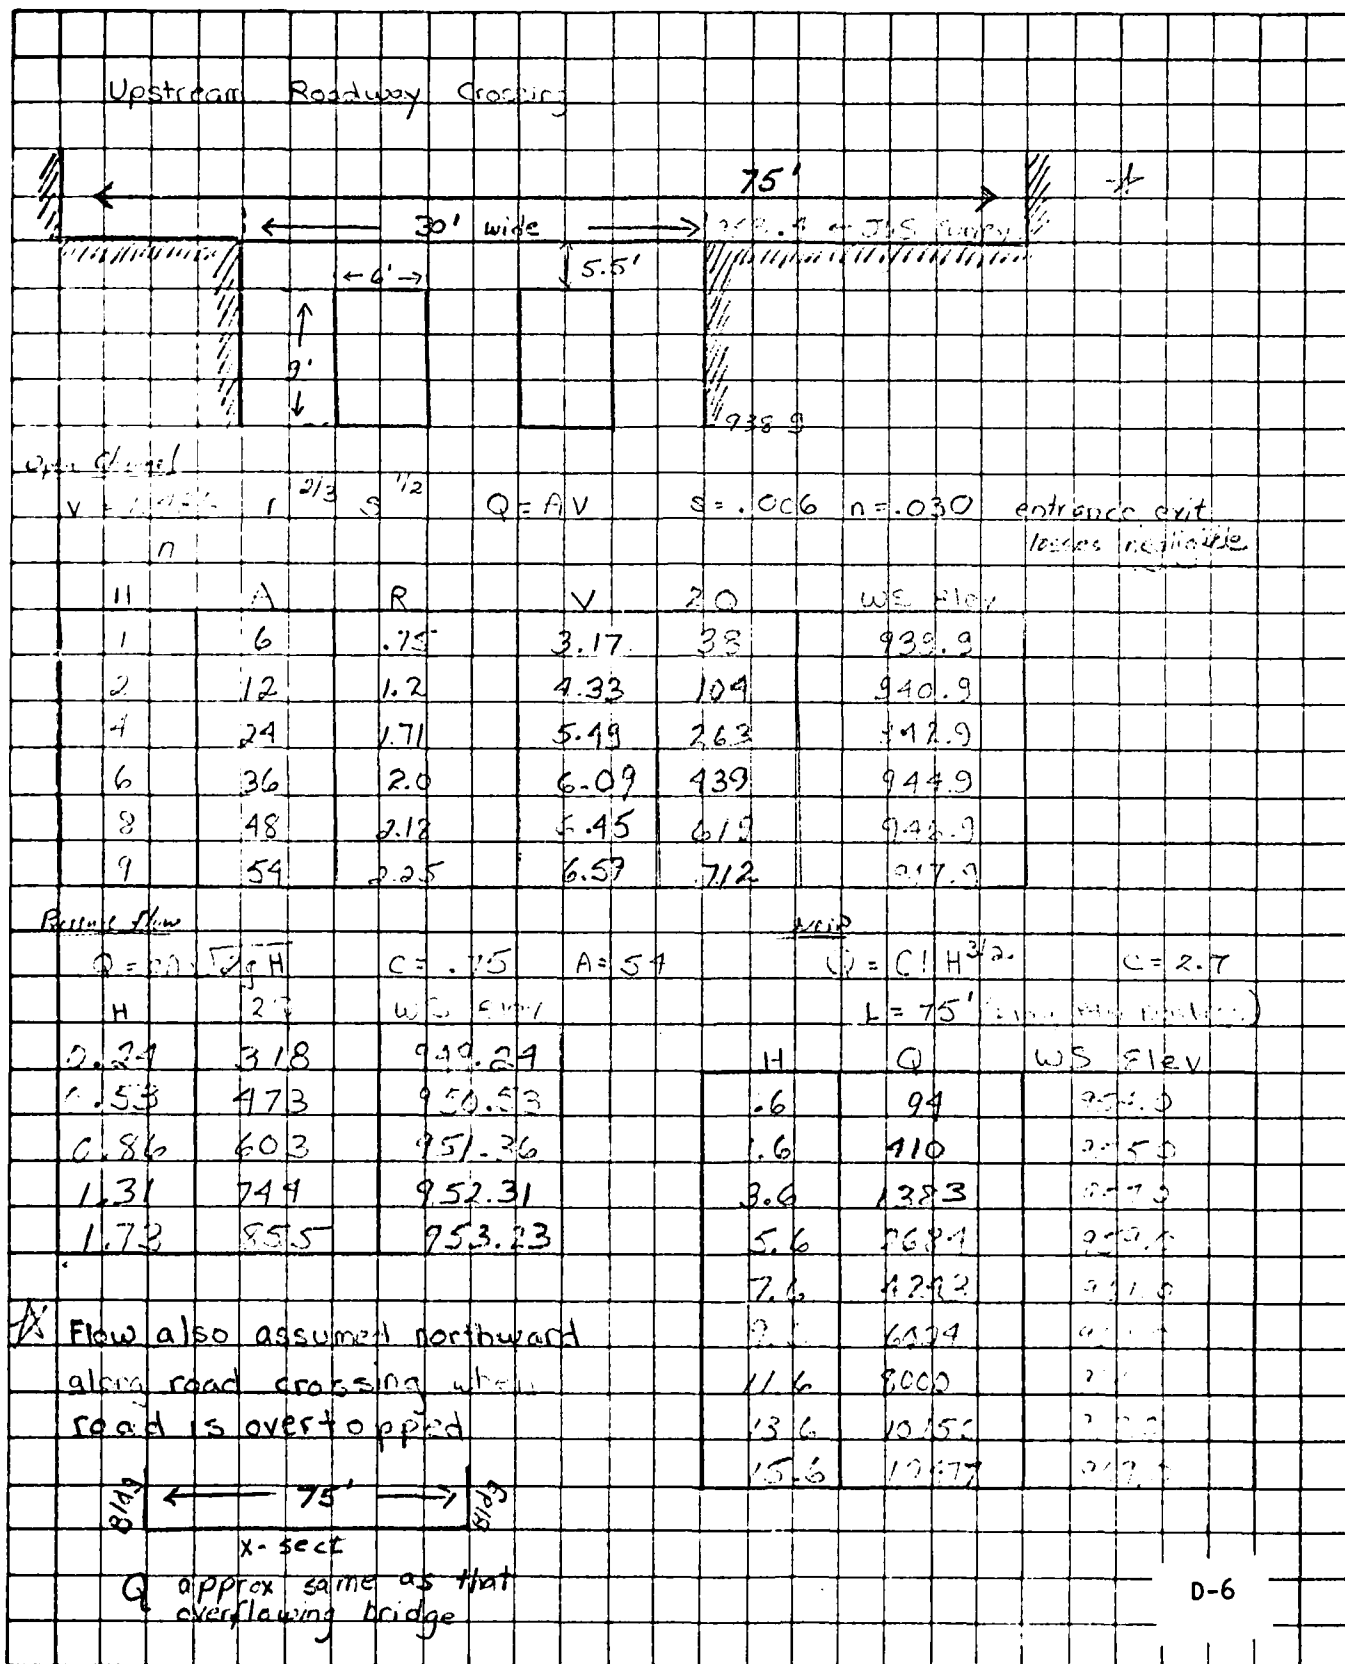 Upstream Roadway Crossing
75'
30' wide
← 6' →
5.5'
9'
938.9
Open Channel
V = r 2/3 S 1/2 Q = AV S = .006 n = .030 entrance exit
n losses negligible
H A R V 2Q WS Elev
1 6 .75 3.17 38 939.9
2 12 1.2 4.33 104 940.9
4 24 1.71 5.49 263 942.9
6 36 2.0 6.09 439 944.9
8 48 2.18 6.45 619 946.9
9 54 2.25 6.57 712 947.9
Pressure flow
Q = CA √2gH C = .75 A = 54
H 2Q WS Elev
0.24 318 949.24
0.53 473 950.53
0.86 603 951.36
1.31 744 952.31
1.73 855 953.23
Weir
Q = CLH 3/2 C = 2.7
L = 75'
H Q WS Elev
.6 94
1.6 410
3.6 1383
5.6 2684
7.6 4242
6024
11.6 8000
13.6
15.6
Flow also assumed northward
along road crossing when
road is overtopped
Bldg ← 75' → Bldg
x-sect
Q approx same as that
overflowing bridge
D-6